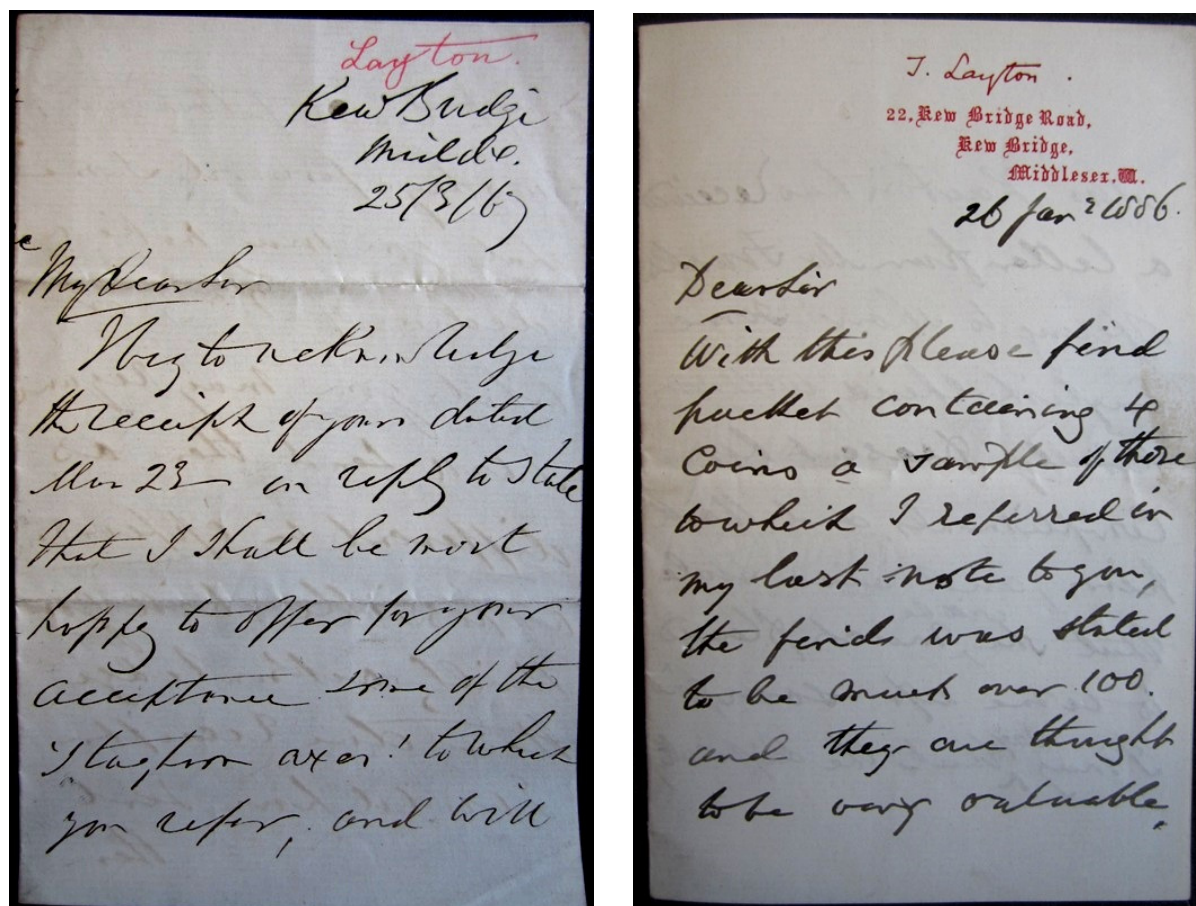 Layton.
Kew Bridge
Middx.
25/3/67
My Dear Sir
I beg to acknowledge
the receipt of yours dated
Mar 23 in reply to state
that I shall be most
happy to offer for your
acceptance some of the
'Staghorn axes' to which
you refer, and will
T. Layton.
22, Kew Bridge Road,
Kew Bridge,
Middlesex, W.
26 Jany 1886.
Dear Sir
With this please find
packet containing 4
Coins a sample of those
to which I referred in
my last note to you,
the finds was stated
to be much over 100.
and they are thought
to be very valuable,